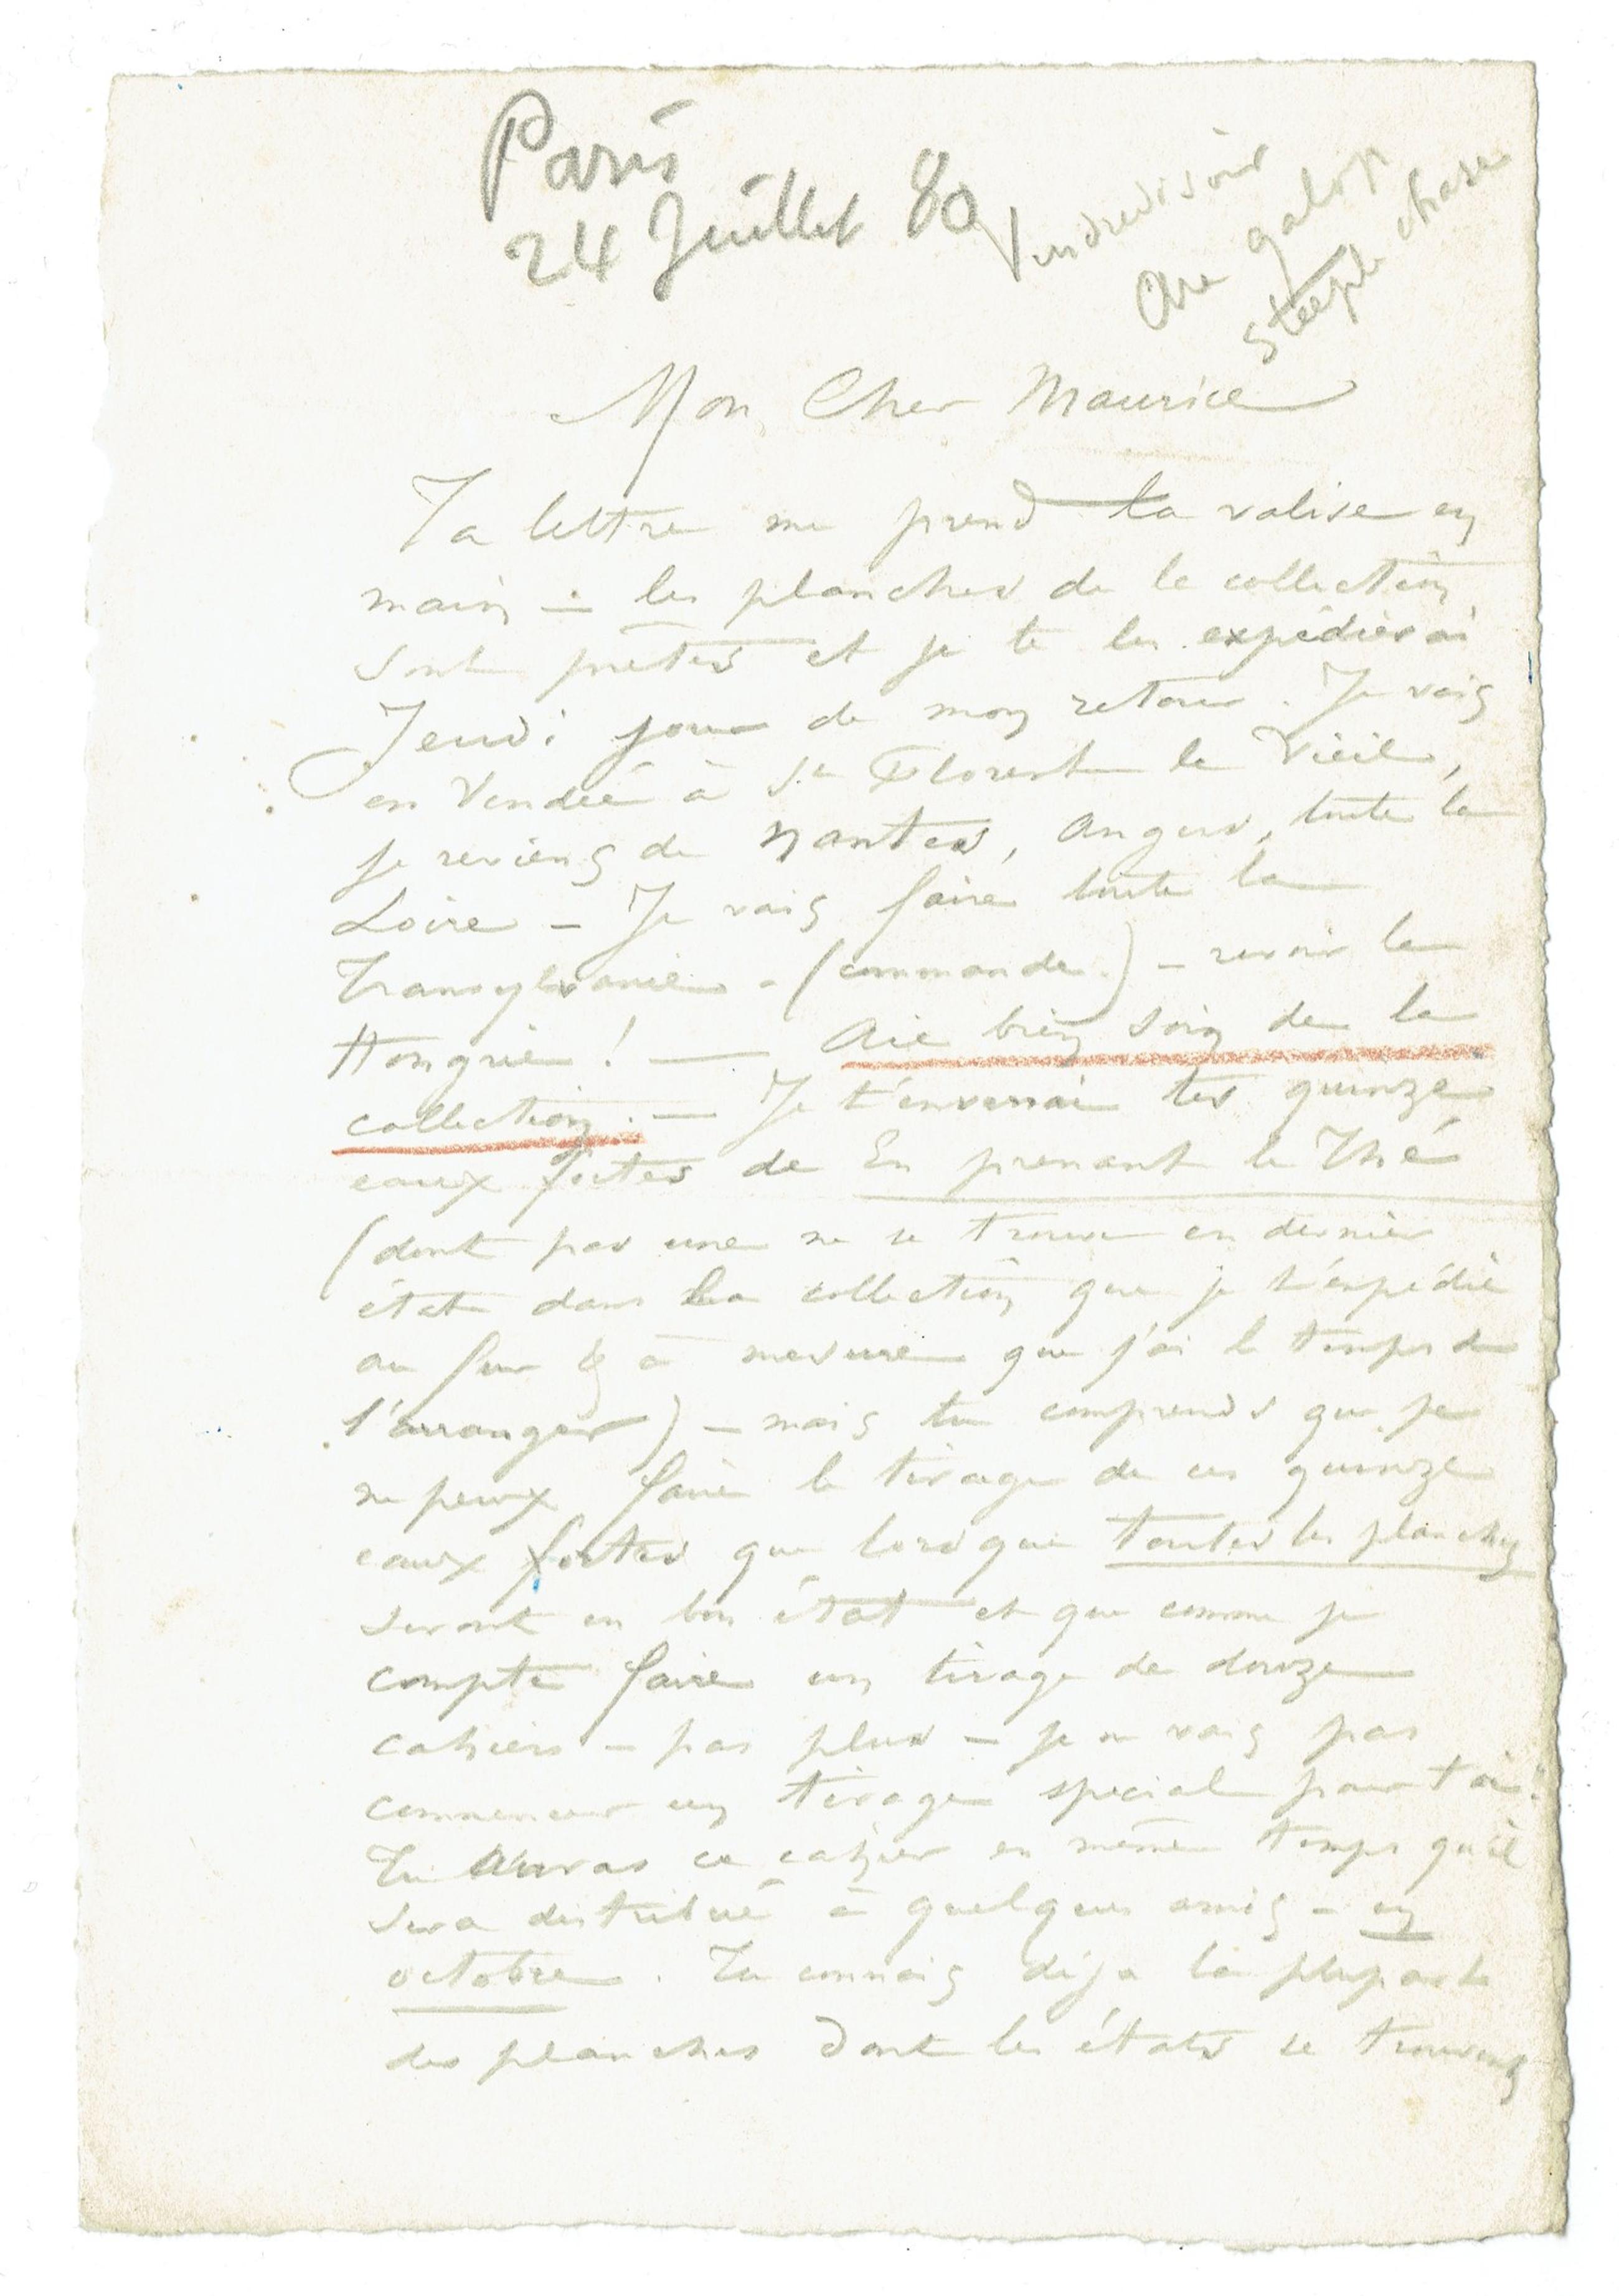 Paris
24 Juillet 80
Vendredi soir
Au galop
steeple chase
Mon Cher Maurice
Ta lettre me prend la valise en
main – les planches de la collection
sont prêtes et je te les expédierai
Jeudi jour de mon retour. Je vais
en Vendée à St Florent le Vieil,
je reviens de Nantes, Angers, toute la
Loire – Je vais faire toute la
Transylvanie – (commande) – revoir la
Hongrie ! — Aie bien soin de la
collection. — Je t'enverrai les quinze
eaux fortes de En prenant le Thé
(dont pas une ne se trouve en dernier
état dans la collection que je t'expédie
au fur & à mesure que j'ai le temps de
l'arranger) – mais tu comprends que je
ne peux faire le tirage de ces quinze
eaux fortes que lorsque toutes les planches
seront en bon état et que comme je
compte faire un tirage de douze
cahiers – pas plus – je ne vais pas
commencer un tirage special pour toi.
Tu auras ce cahier en même temps qu'il
sera distribué à quelques amis – en
octobre. Tu connais déja la plupart
des planches dont les états se trouvent